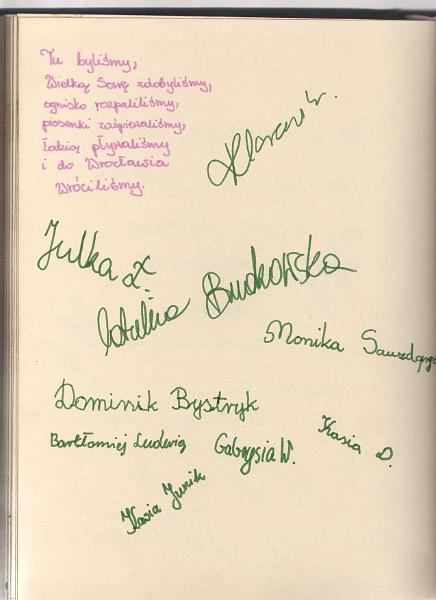 Tu byliśmy,
Wielką Sowę zdobyliśmy,
ognisko rozpaliliśmy,
piosenki zaśpiewaliśmy,
Łabią pływaliśmy
i do Wrocławia
Wróciliśmy.
W.
Julka
Budkowska
Monika
Dominik Bystryk
Bartłomiej Ludwig
Gabrysia W.
Kasia D.
Kasia Junik